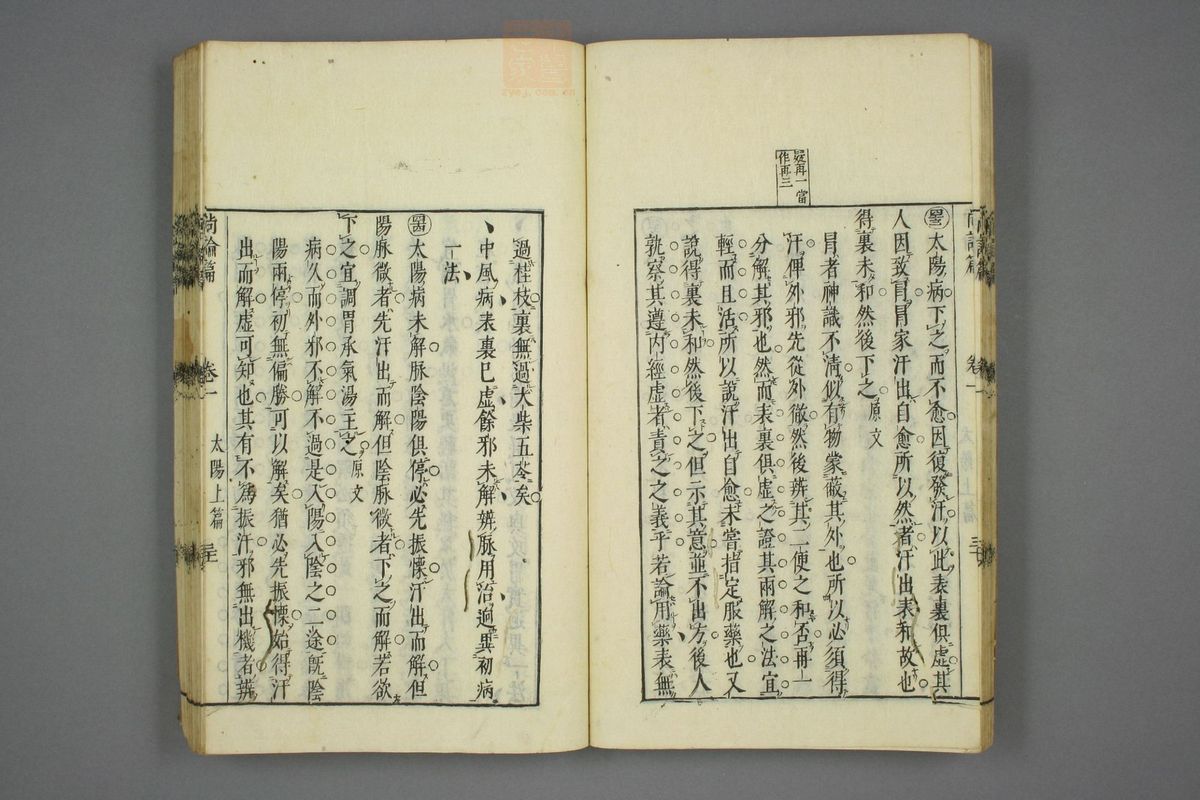 疑再一當
作再三
太陽病下之而不愈因復發汗以此表裏俱虛其
人因致冐冐家汗出自愈所以然者汗出表和故也
得裏未和然後下之原文
冐者神識不清似有物蒙蔽其外也所以必須得
汗俾外邪先從外徹然後辨其二便之和否再一
分解其邪也然而表裏俱虛之證其兩解之法宜
輕而且活所以說汗出自愈未嘗指定服藥也又
說得裏未和然後下之但示其意並不出方後人
孰察其遵內經虛者責之之義乎若論用藥表無
尚論篇 卷一
過桂枝裏無過大柴五苓矣
中風病表裏已虛餘邪未解辨脉用治逈異初病
一法
太陽病未解脉陰陽俱停必先振慄汗出而解但
陽脉微者先汗出而解但陰脉微者下之而解若欲
下之宜調胃承氣湯主之原文
病久而外邪不解不過是入陽入陰之二途旣陰
陽兩停初無偏勝可以解矣猶必先振慄始得汗
出而解虛可知也其有不爲振汗邪無出機者辨
尚論篇 卷一 太陽上篇